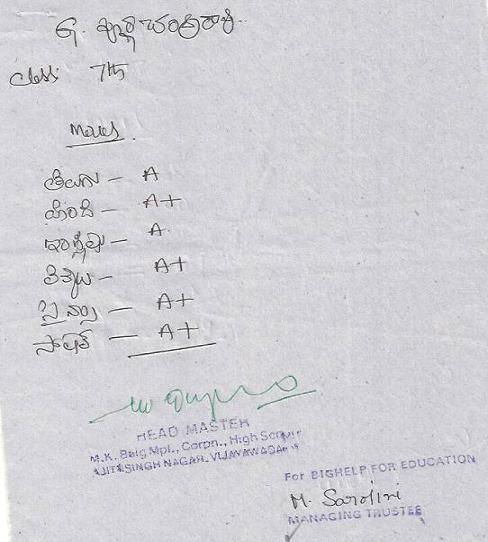 G.
Class: 7th
Marks.
తెలుగు — A
హిందీ — A+
ఇంగ్లీషు — A
లెక్కలు — A+
సైన్సు — A+
సోషల్ — A+
HEAD MASTER
M.K. Baig Mpl., Corpn., High School
AJITSINGH NAGAR, VIJAYAWADA
For BIGHELP FOR EDUCATION
M. Sarojini
MANAGING TRUSTEE